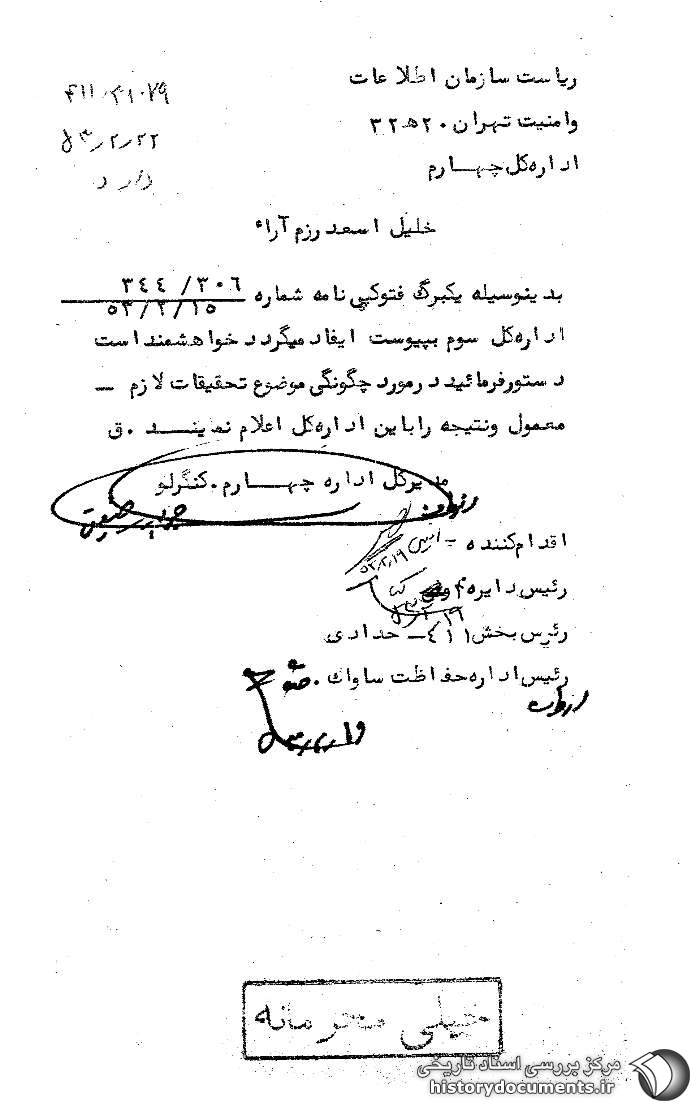 ریاست سازمان اطلاعات
وامنیت تهران ۲۰ﻫ۳۲
اداره‌کل چهارم
۴۱۱/۳۱۰۷۹
۵۳/۲/۲۲
دارد
خلیل اسعد رزم آراء
بدینوسیله یکبرگ فتوکپی نامه شماره ۳۴٤/۳۰٦
۵۳/۲/۱۵
اداره‌کل سوم بپیوست ایفاد میگردد خواهشمند است
دستورفرمائید درمورد چگونگی موضوع تحقیقات لازم –
معمول ونتیجه راباین اداره‌کل اعلام نمایند . ق
مدیرکل اداره چهارم . کنگرلو
اقدام‌کننده –
۵۳/۲/۱۹
رئیس دایره
رئیس بخش ٤۱۱ – حدادی
رئیس اداره حفاظت ساواک .
۵۳/۲/۱۹
خیلی محرمانه
مرکز بررسی اسناد تاریخی
historydocuments.ir